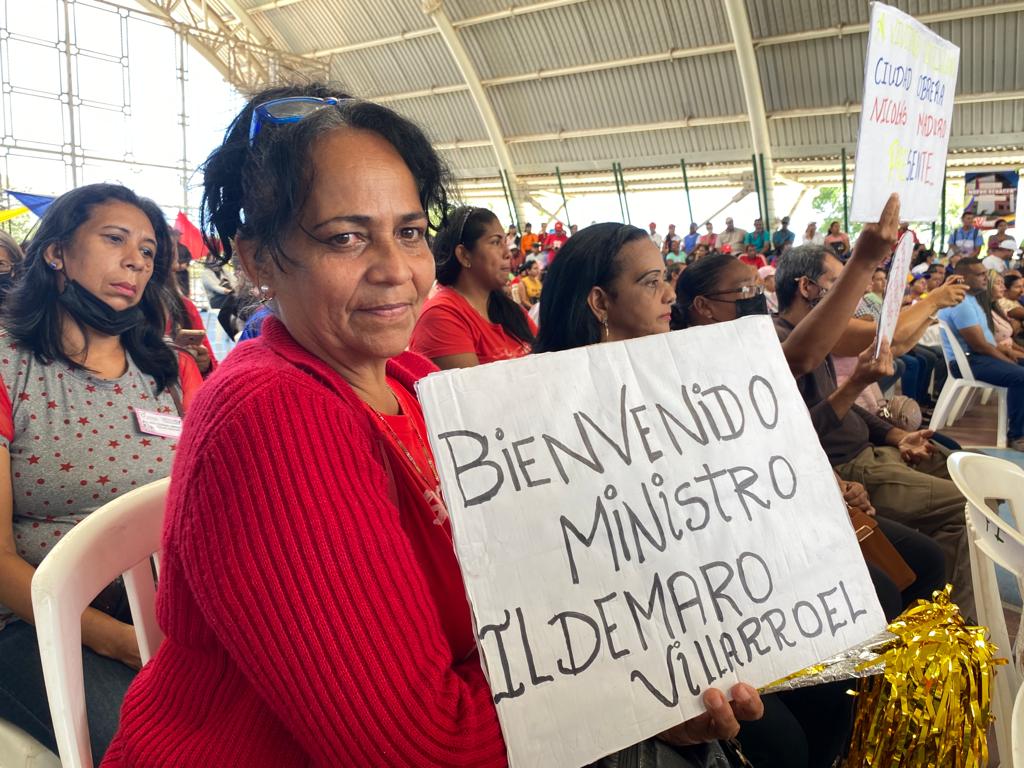 BIENVENIDO
MINISTRO
ILDEMARO
VILLARROEL
CIUDAD OBRERA
NICOLÁS MADURO
PRESENTE.